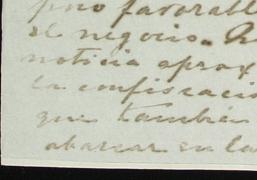 pino favorabl
el negocio. A
noticia aprox
la confiscació
que tambié
abarcar en la